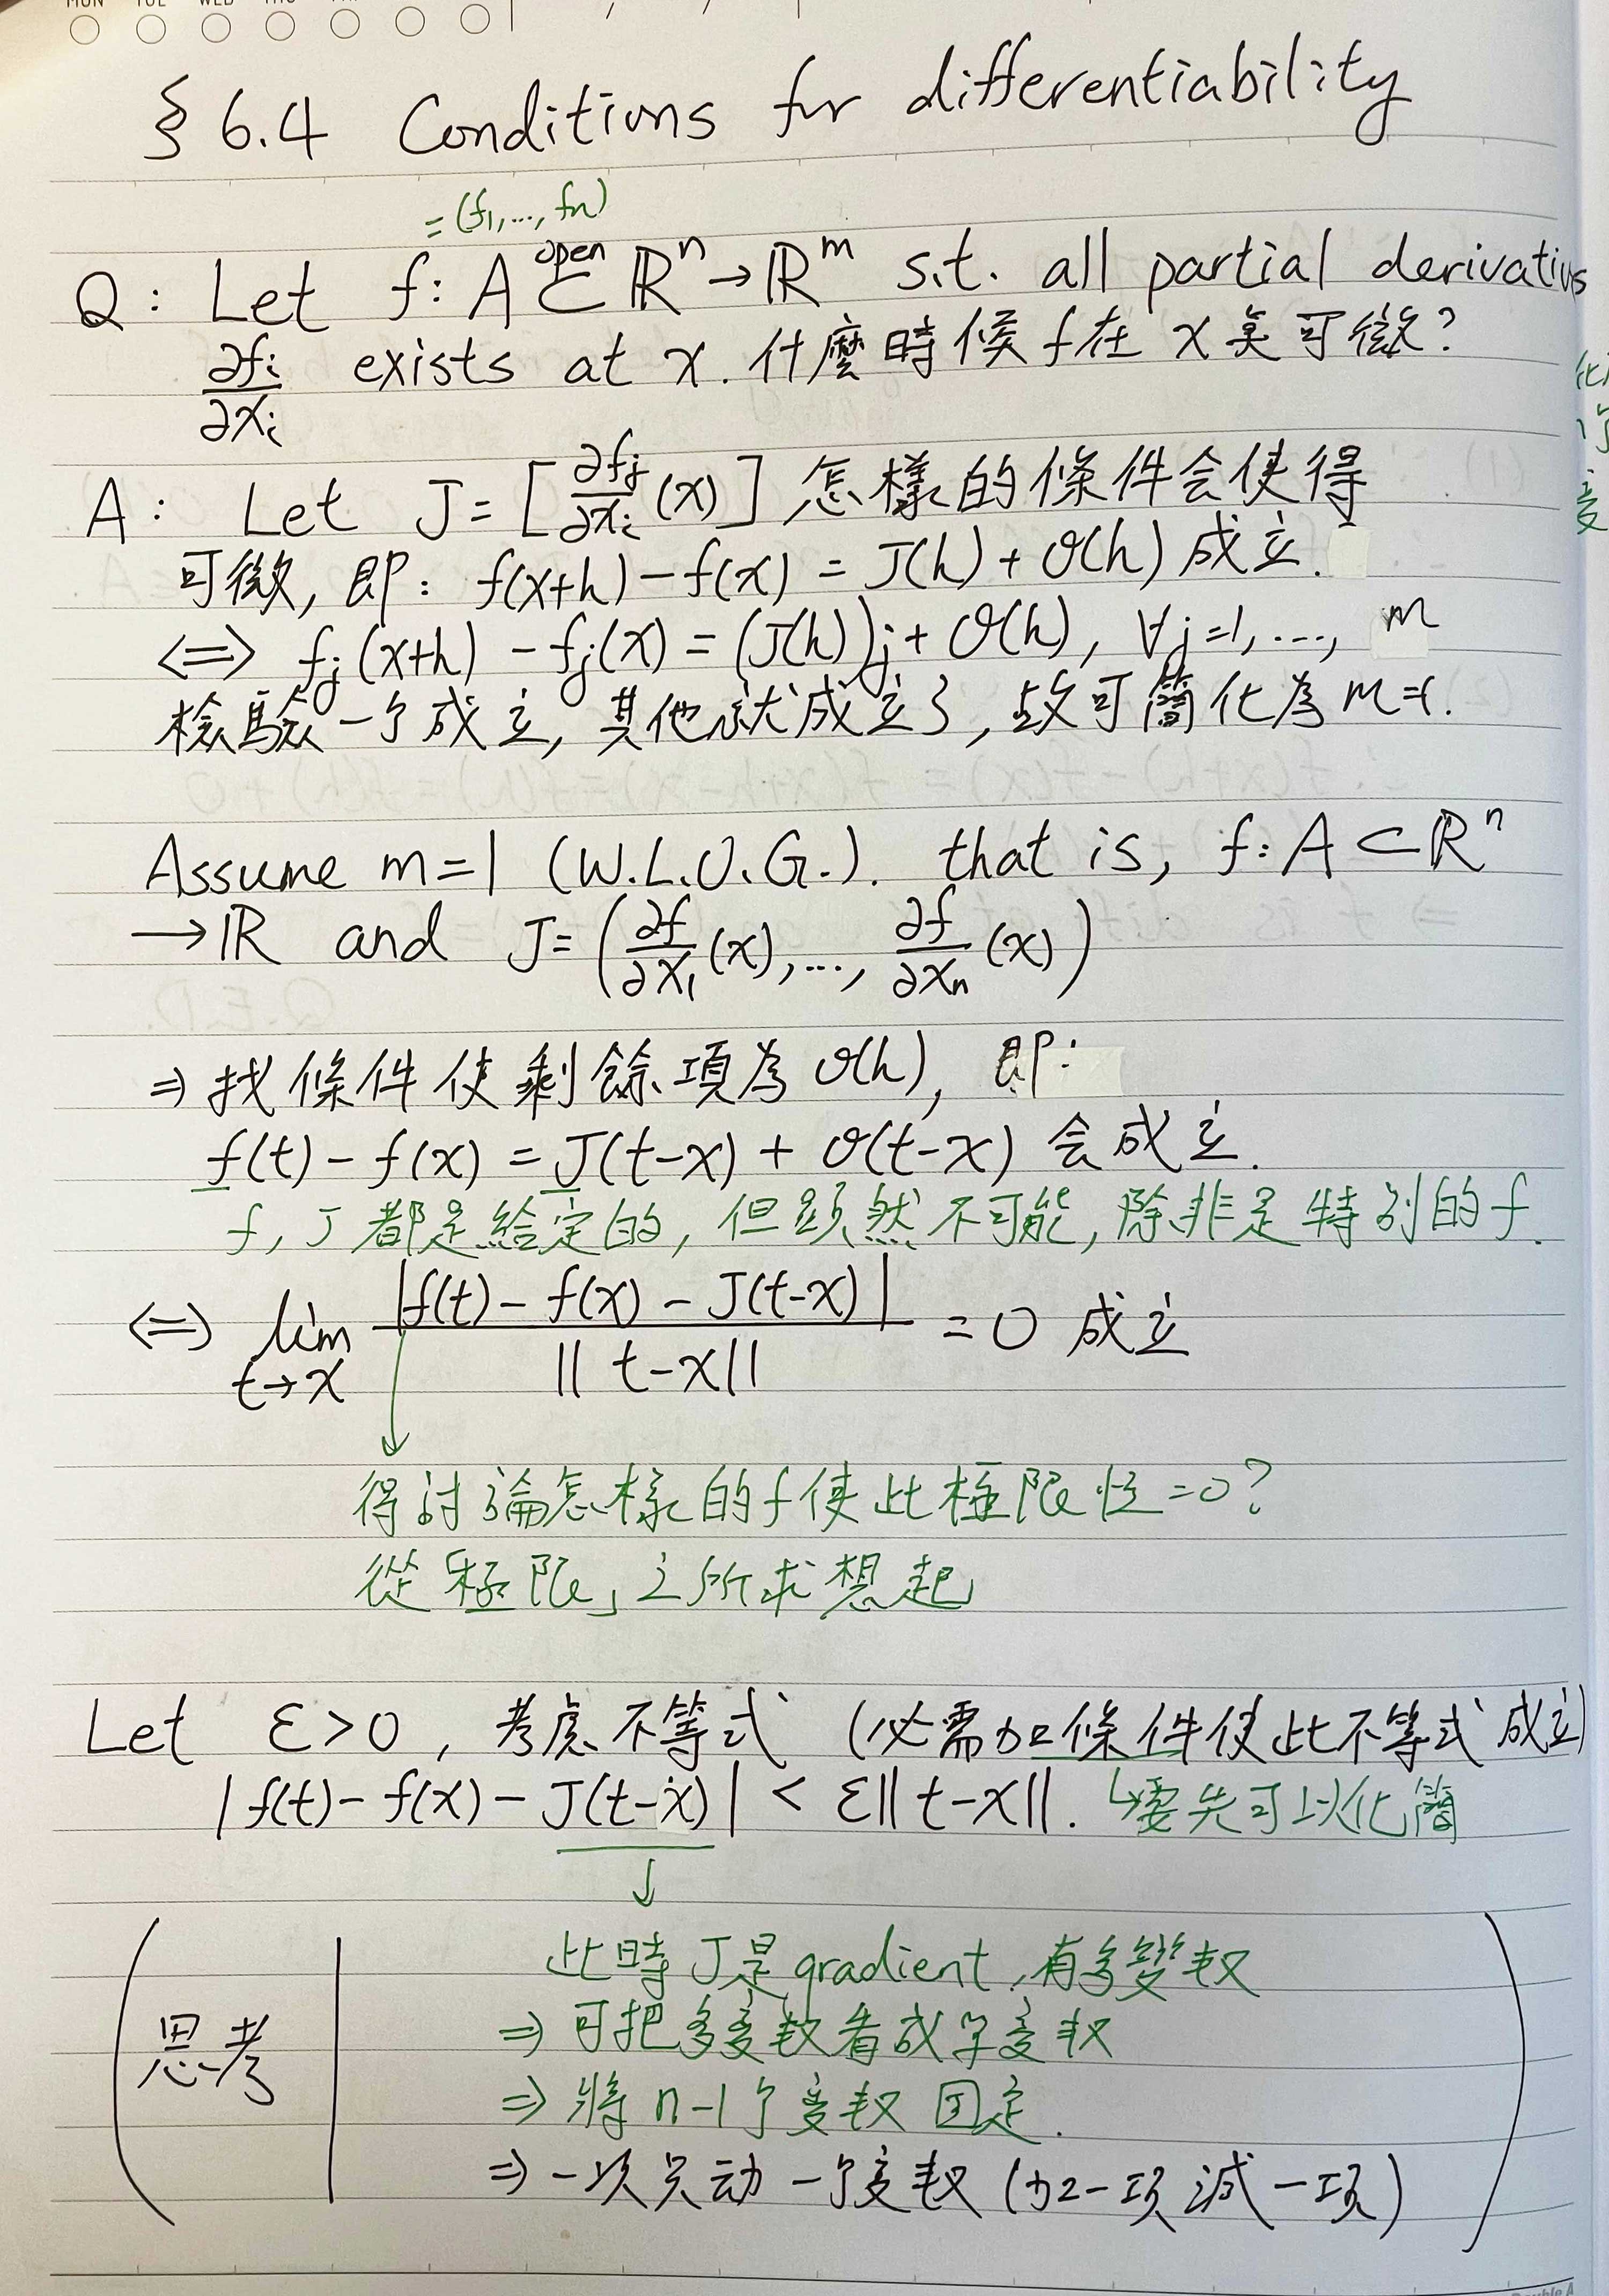 MON TUE WED THU
§ 6.4 Conditions for differentiability
=(f₁,…, fₙ)
open
Q: Let f: A ⊂ ℝⁿ → ℝᵐ s.t. all partial derivatives
∂fᵢ/∂xᵢ exists at x. 什麼時候 f 在 x 矣可微?
A: Let J = [∂fⱼ/∂xᵢ (x)] 怎樣的條件会使得
可微, 即: f(x+h) − f(x) = J(h) + o(h) 成立.
⟺ fⱼ(x+h) − fⱼ(x) = (J(h))ⱼ + o(h), ∀j=1,…, m
檢驗一个成立, 其他就成立了, 故可簡化為 m=1.
Assume m=1 (W.L.O.G.). that is, f: A ⊂ ℝⁿ
→ ℝ and J = (∂f/∂x₁ (x),…, ∂f/∂xₙ (x))
⇒ 找條件使剩餘項為 o(h), 即:
f(t) − f(x) = J(t−x) + o(t−x) 会成立.
f, J 都是給定的, 但顯然不可能, 除非是特別的 f.
⟺ lim t→x |f(t) − f(x) − J(t−x)| / ‖t−x‖ = 0 成立
得討論怎樣的 f 使此極限恆=0?
從「極限」之所求想起
Let ε>0, 考慮不等式 (必需加條件使此不等式成立)
|f(t) − f(x) − J(t−x)| < ε‖t−x‖. ↳要先可以化簡
↓
此時 J 是 gradient, 有多變数
思考
⇒ 可把多变数看成単变数
⇒ 將 n−1 个变数固定.
⇒ 一次只动一个变数 (加一项减一项)
Double A